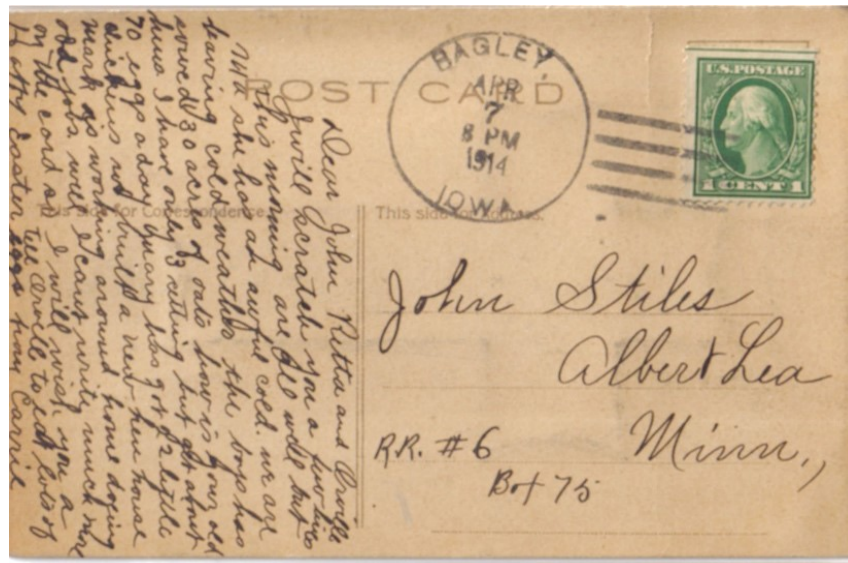 POST CARD
BAGLEY
APR
7
8 PM
1914
IOWA
U.S. POSTAGE
1 CENT 1
This side for Correspondence.
This side for Address.
Dear John Retta and Orville
I will scratch you a few lines
this morning are all well but
Ma she has an awful cold. we are
having cold weather the boys has
sowed 30 acres of oats how is your old
hens I have only 3 setting but get about
70 eggs a day has got 52 little
chickens not built a new hen house
Mark is working around home doping
odd jobs well I cant write much more
on the card so I will wish you a
Happy Easter tell Orvill to eat lots of
eggs Carrie
John Stiles
Albert Lea
R.R. #6 Minn.,
Box 75